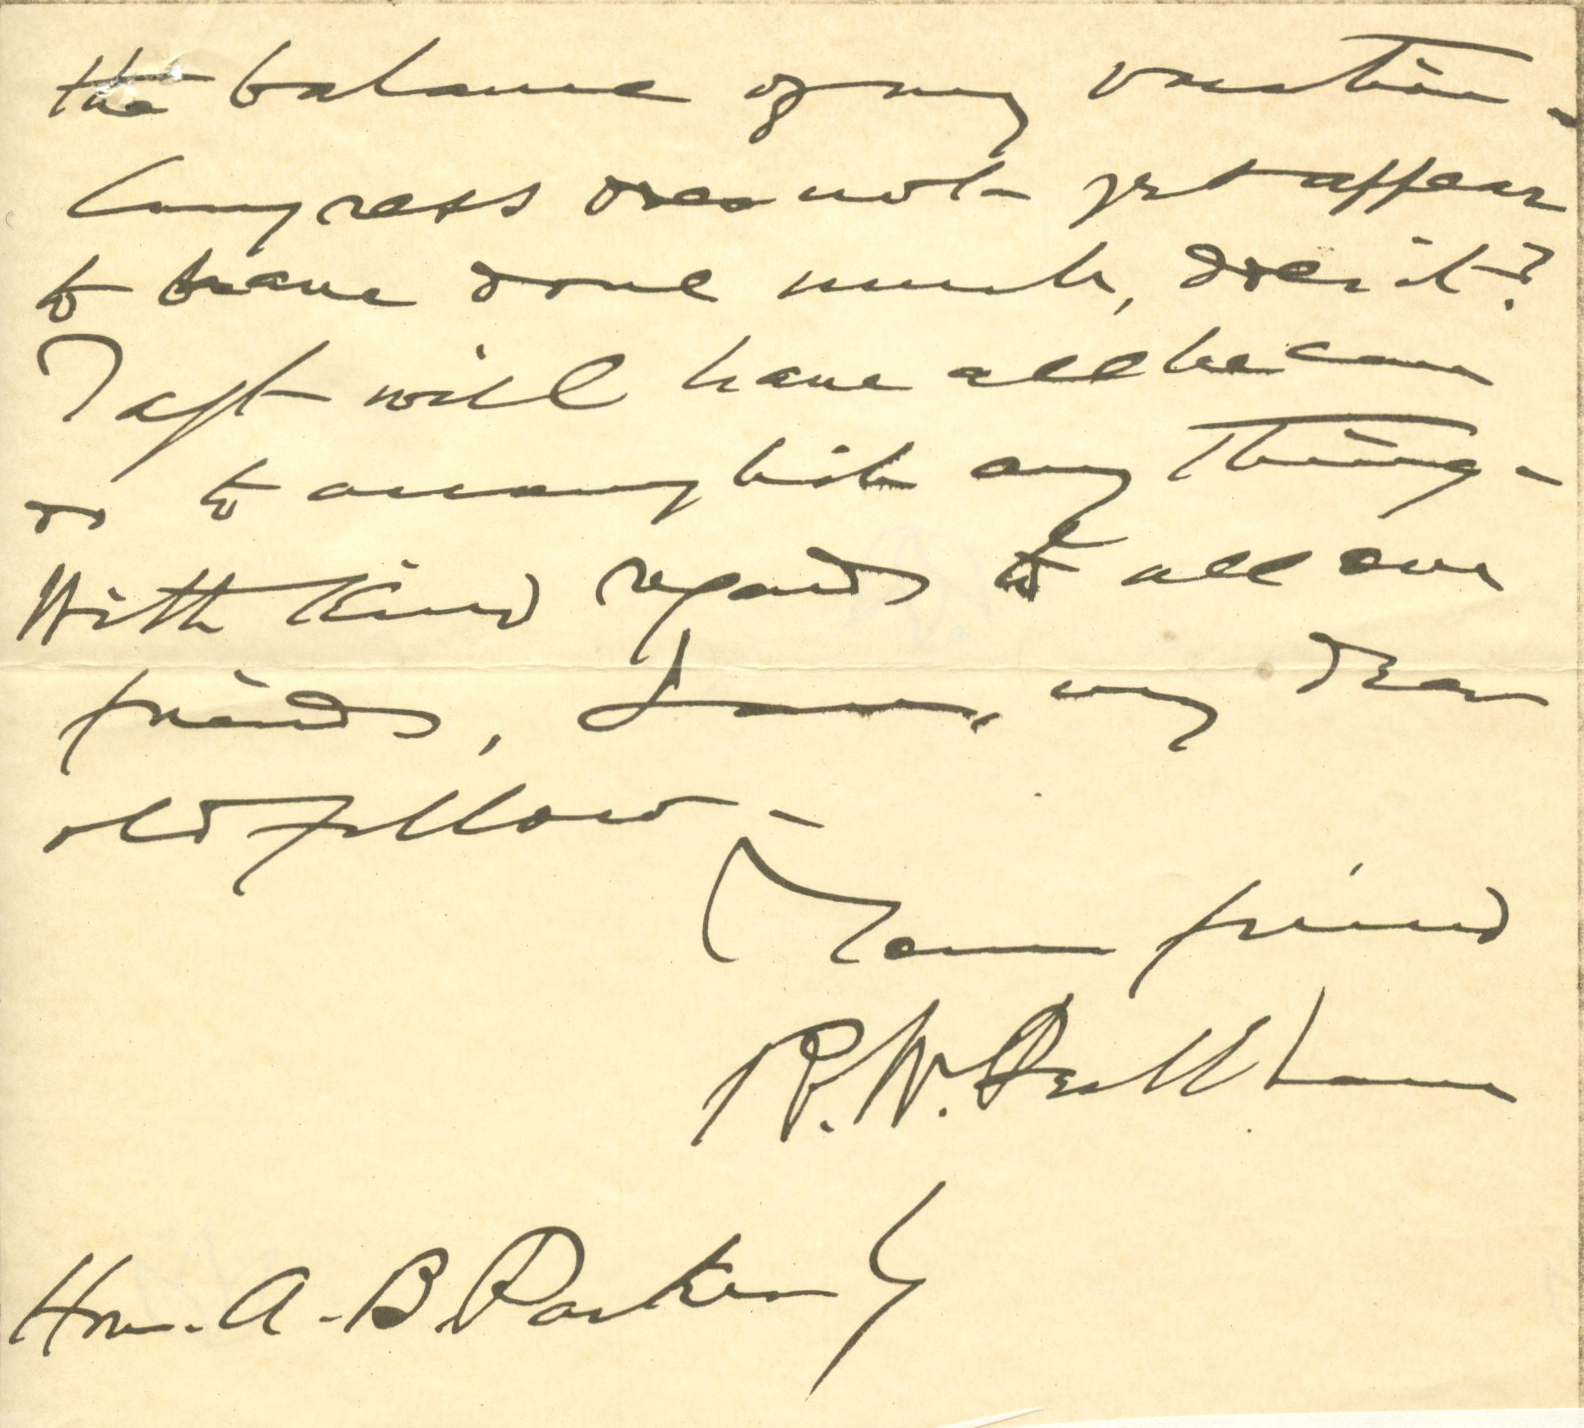 the balance of my vacation -
Congress does not yet appear
to have done much, does it?
Taft will have all he can
do to accomplish any thing -
With kind regards to all our
friends, I am, my dear
old fellow -
Your friend
R. W. Peckham
Hon. A. B. Parker